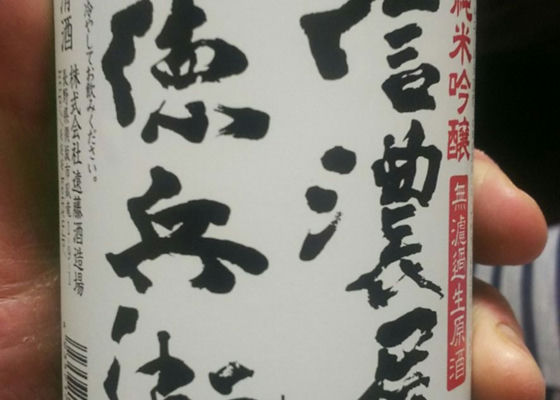 純米吟醸
無濾過生原酒
信濃屋
徳兵衛
冷やしてお飲みください。
株式会社遠藤酒造場
清酒